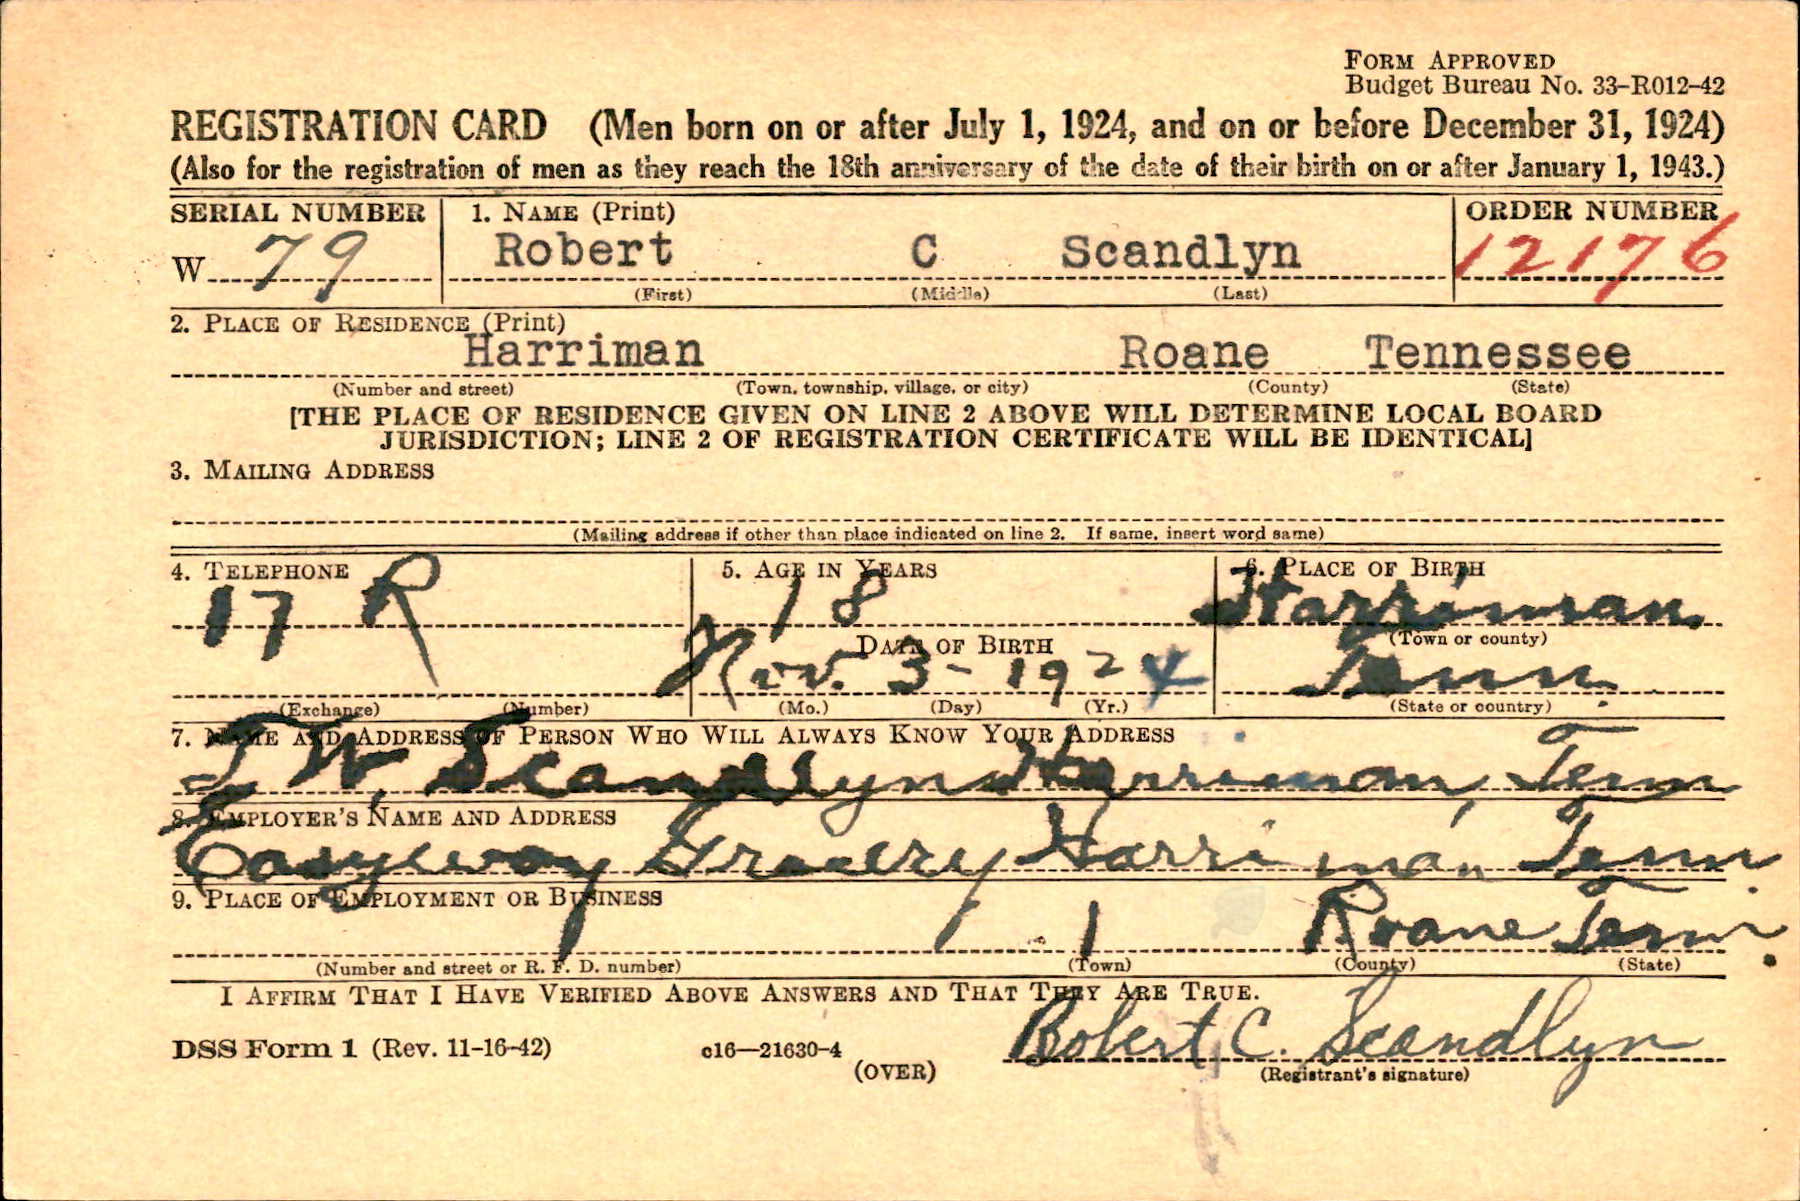 FORM APPROVED
Budget Bureau No. 33-R012-42
REGISTRATION CARD (Men born on or after July 1, 1924, and on or before December 31, 1924)
(Also for the registration of men as they reach the 18th anniversary of the date of their birth on or after January 1, 1943.)
SERIAL NUMBER 1. NAME (Print) ORDER NUMBER
W 79 Robert C Scandlyn 12176
(First) (Middle) (Last)
2. PLACE OF RESIDENCE (Print)
Harriman Roane Tennessee
(Number and street) (Town, township, village, or city) (County) (State)
[THE PLACE OF RESIDENCE GIVEN ON LINE 2 ABOVE WILL DETERMINE LOCAL BOARD
JURISDICTION; LINE 2 OF REGISTRATION CERTIFICATE WILL BE IDENTICAL]
3. MAILING ADDRESS
(Mailing address if other than place indicated on line 2. If same, insert word same)
4. TELEPHONE 5. AGE IN YEARS 6. PLACE OF BIRTH
17 R 18 Harriman
DATE OF BIRTH (Town or county)
Nov. 3-1924 Tenn.
(Exchange) (Number) (Mo.) (Day) (Yr.) (State or country)
7. NAME AND ADDRESS OF PERSON WHO WILL ALWAYS KNOW YOUR ADDRESS
T W. Scandlyn Harriman, Tenn
8. EMPLOYER'S NAME AND ADDRESS
Easyway Grocery Harriman Tenn.
9. PLACE OF EMPLOYMENT OR BUSINESS
Roane Tenn.
(Number and street or R. F. D. number) (Town) (County) (State)
I AFFIRM THAT I HAVE VERIFIED ABOVE ANSWERS AND THAT THEY ARE TRUE.
Robert C. Scandlyn
DSS Form 1 (Rev. 11-16-42) c16—21630-4
(OVER) (Registrant's signature)